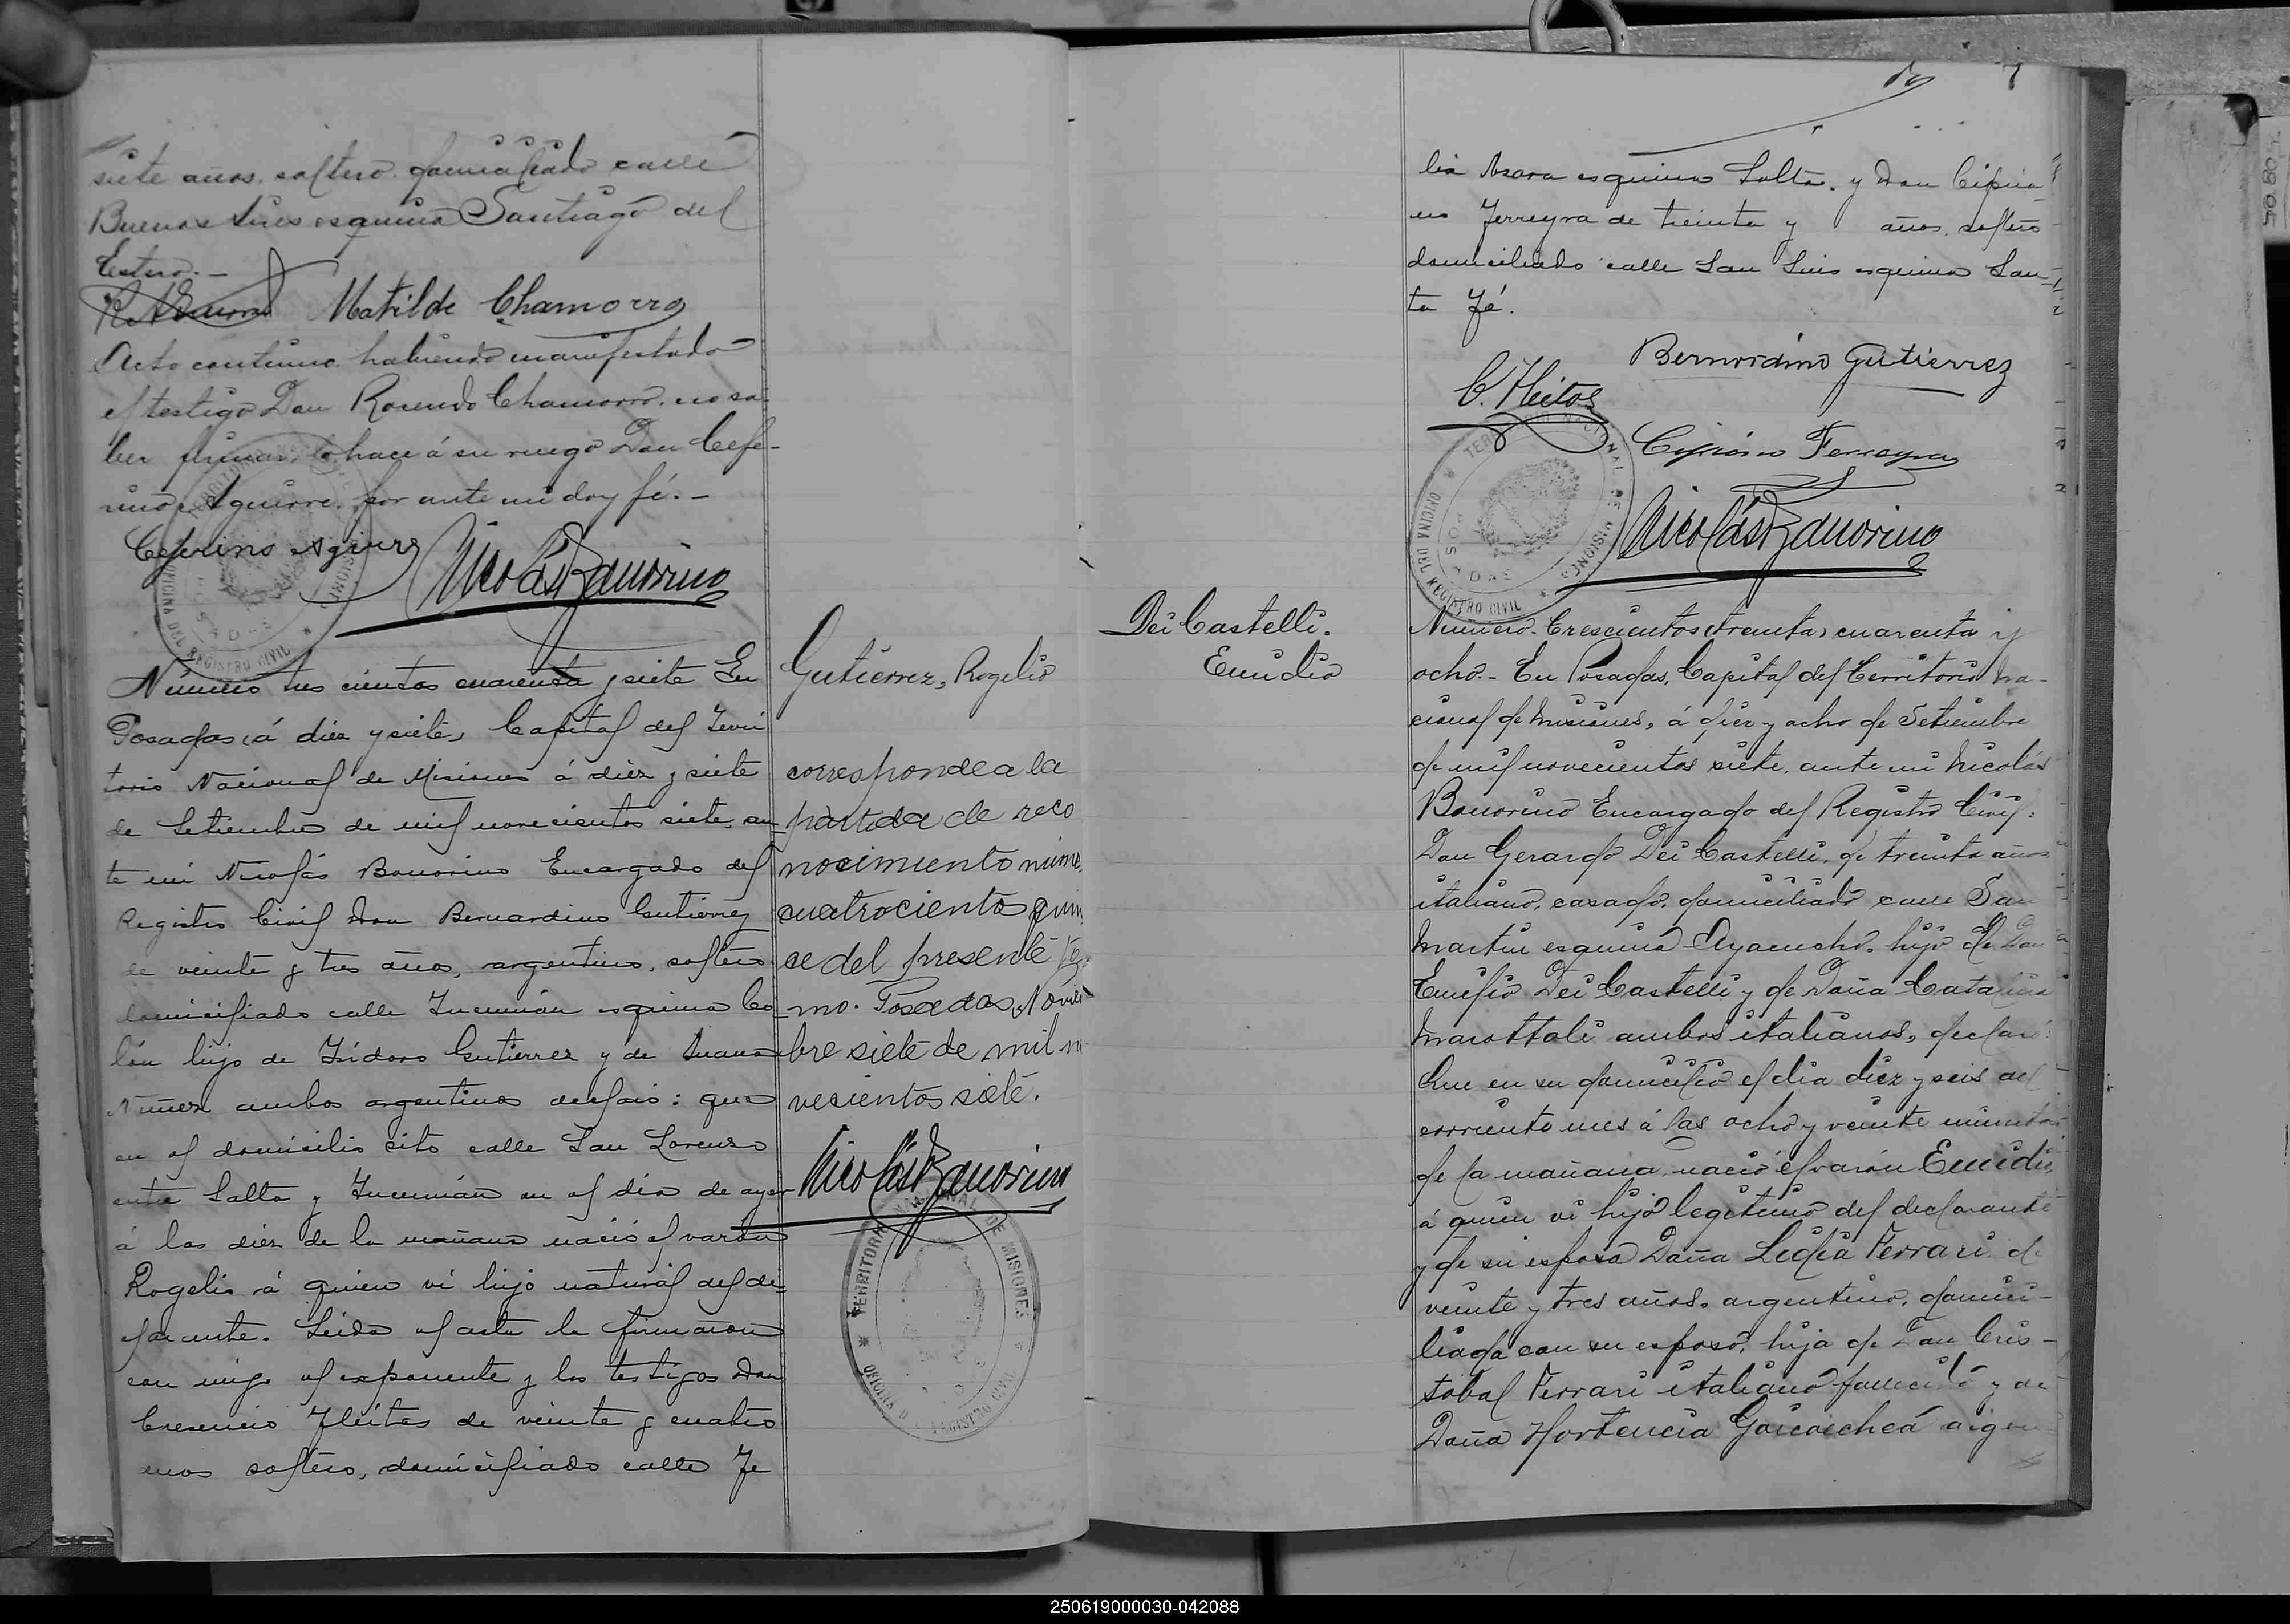 siete años, soltero domiciliado calle
Buenos Aires esquina Santiago del
Estero.-
Matilde Chamorro
Acto contínuo habiendo manifestado
el testigo Don Rosendo Chamorro, no sa-
ber firmar, lo hace á su ruego Don Cefe-
rino Aguirre, por ante mi doy fé.-
Ceferino Agirre Nicolás Bonorino
Número tres cientos cuarenta y siete En
Posadas, á diez y siete, Capital del Terri
torio Nacional de Misiones á diez y siete
de Setiembre de mil novecientos siete, an
te mi Nicolás Bonorino Encargado del
Registro Civil Don Bernardino Gutierrez
de veinte y tres años, argentino, soltero
domiciliado calle Tucumán esquina Co
lón hijo de Isidoro Gutierrez y de Juana
Nuñez ambos argentinos declaró: que
en el domicilio sito calle San Lorenzo
entre Salta y Tucumán en el dia de ayer
á las diez de la mañana nació el varón
Rogelio á quien ví hijo natural del de-
clarante. Leida el acta la firmaron
con migo el exponente y los testigos Don
Cresencio Fleitas de veinte y cuatro
anos soltero, domiciliado calle Fe
Gutierrez, Rogelio
corresponde a la
partida de reco
nocimiento núme.
cuatrocientos quin
ce del presente to
mo. Posadas, Noviem
bre siete de mil no
vecientos siete.
Nicolás Bonorino
TERRITORIO NACIONAL DE MISIONES
OFICINA DEL REGISTRO CIVIL
7
liz Azara esquina Salta. y Don Cipria
no Ferreyra de treinta y años, soltero
domiciliado calle San Luis esquina San-
ta Fé.
Bernardino Gutierrez
C. Fleitas
Cipriano Ferreyra
Nicolás Bonorino
TERRITORIO NACIONAL DE MISIONES
POSADAS
OFICINA DEL REGISTRO CIVIL
Dei Castelli.
Emidio
Número. Trescientos treinta, cuarenta y
ocho.- En Posadas, Capital del Territorio Na-
cional de Misiones, á diez y ocho de Setiembre
de mil novecientos siete, ante mi Nicolás
Bonorino Encargado del Registro Civil:
Don Gerardo Dei Castelli, de treinta años
italiano, casado, domiciliado calle San
Martin esquina Ayacucho, hijo de Don
Emidio Dei Castelli y de Doña Catalina
Marottoli ambos italianos, declaró:
Que en su domicilio el dia diez y seis del
corriente mes á las ocho y veinte minutos
de la mañana, nació el varón Emidio,
á quien ví hijo legítimo del declarante
y de su esposa Doña Lidia Ferrari de
veinte y tres años, argentina, domici-
liada con su esposo, hija de Don Cris-
tobal Ferrari italiano fallecido y de
Doña Hortencia Goicoechea argen
250619000030-042088